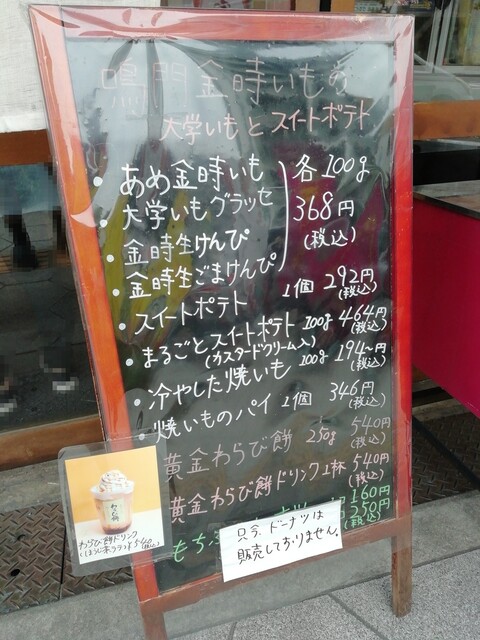 鳴門金時いもの
大学いもとスイートポテト
・あめ金時いも
・大学いもグラッセ
・金時生けんぴ
・金時生ごまけんぴ
各100g
368円
(税込)
・スイートポテト 1個 292円
(税込)
・まるごとスイートポテト 100g 464円
(カスタードクリーム入) (税込)
・冷やした焼いも 100g 194円〜
(税込)
・焼いものパイ 1個 346円
(税込)
黄金わらび餅 250g 540円
(税込)
黄金わらび餅ドリンク 1杯 540円
(税込)
160円
もち 250円
(税込)
只今、ドーナツは
販売しておりません。
わらび餅
わらび餅ドリンク
(ほうじ茶ラテ)¥540(税込)